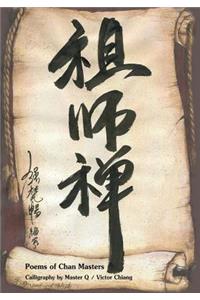 祖師禅
Poems of Chan Masters
Calligraphy by Master Q / Victor Chiang